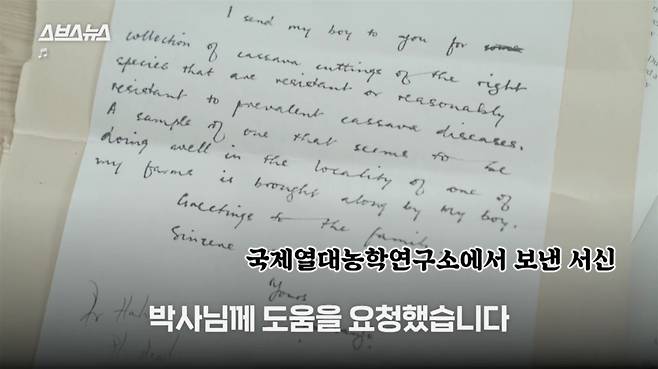 스브스뉴스
I send my boy to you for some
collection of cassava cuttings of the right
species that are resistant or reasonably
resistant to prevalent cassava diseases.
A sample of one that seems to be
doing well in the locality of one of
my farms is brought along by my boy.
Greetings to the family
Sincere
Yours
국제열대농학연구소에서 보낸 서신
박사님께 도움을 요청했습니다
Dr